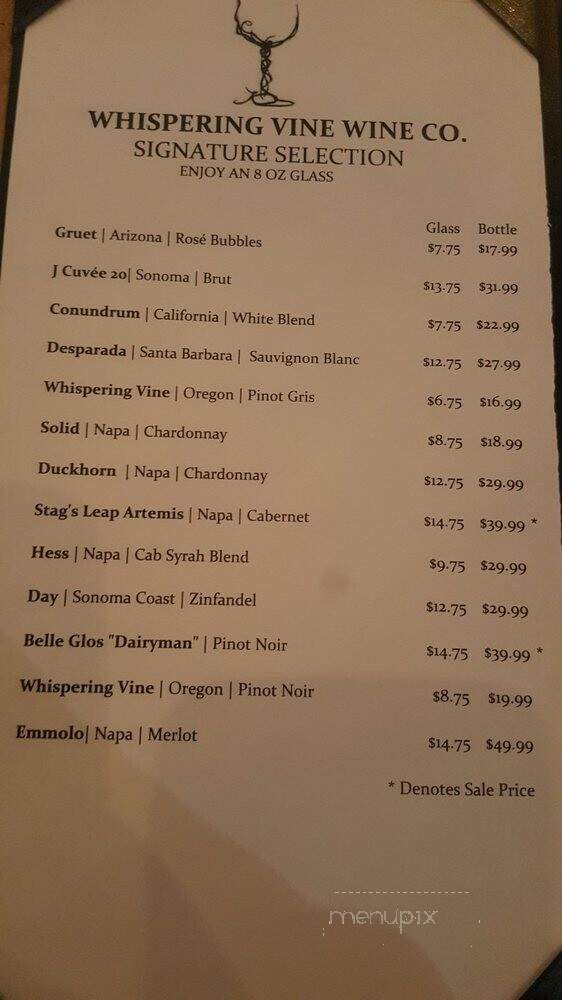 WHISPERING VINE WINE CO.
SIGNATURE SELECTION
ENJOY AN 8 OZ GLASS
Glass Bottle
Gruet | Arizona | Rosé Bubbles $7.75 $17.99
J Cuvée 20| Sonoma | Brut $13.75 $31.99
Conundrum | California | White Blend $7.75 $22.99
Desparada | Santa Barbara | Sauvignon Blanc $12.75 $27.99
Whispering Vine | Oregon | Pinot Gris $6.75 $16.99
Solid | Napa | Chardonnay $8.75 $18.99
Duckhorn | Napa | Chardonnay $12.75 $29.99
Stag's Leap Artemis | Napa | Cabernet $14.75 $39.99 *
Hess | Napa | Cab Syrah Blend $9.75 $29.99
Day | Sonoma Coast | Zinfandel $12.75 $29.99
Belle Glos "Dairyman" | Pinot Noir $14.75 $39.99 *
Whispering Vine | Oregon | Pinot Noir $8.75 $19.99
Emmolo| Napa | Merlot $14.75 $49.99
* Denotes Sale Price
menupix